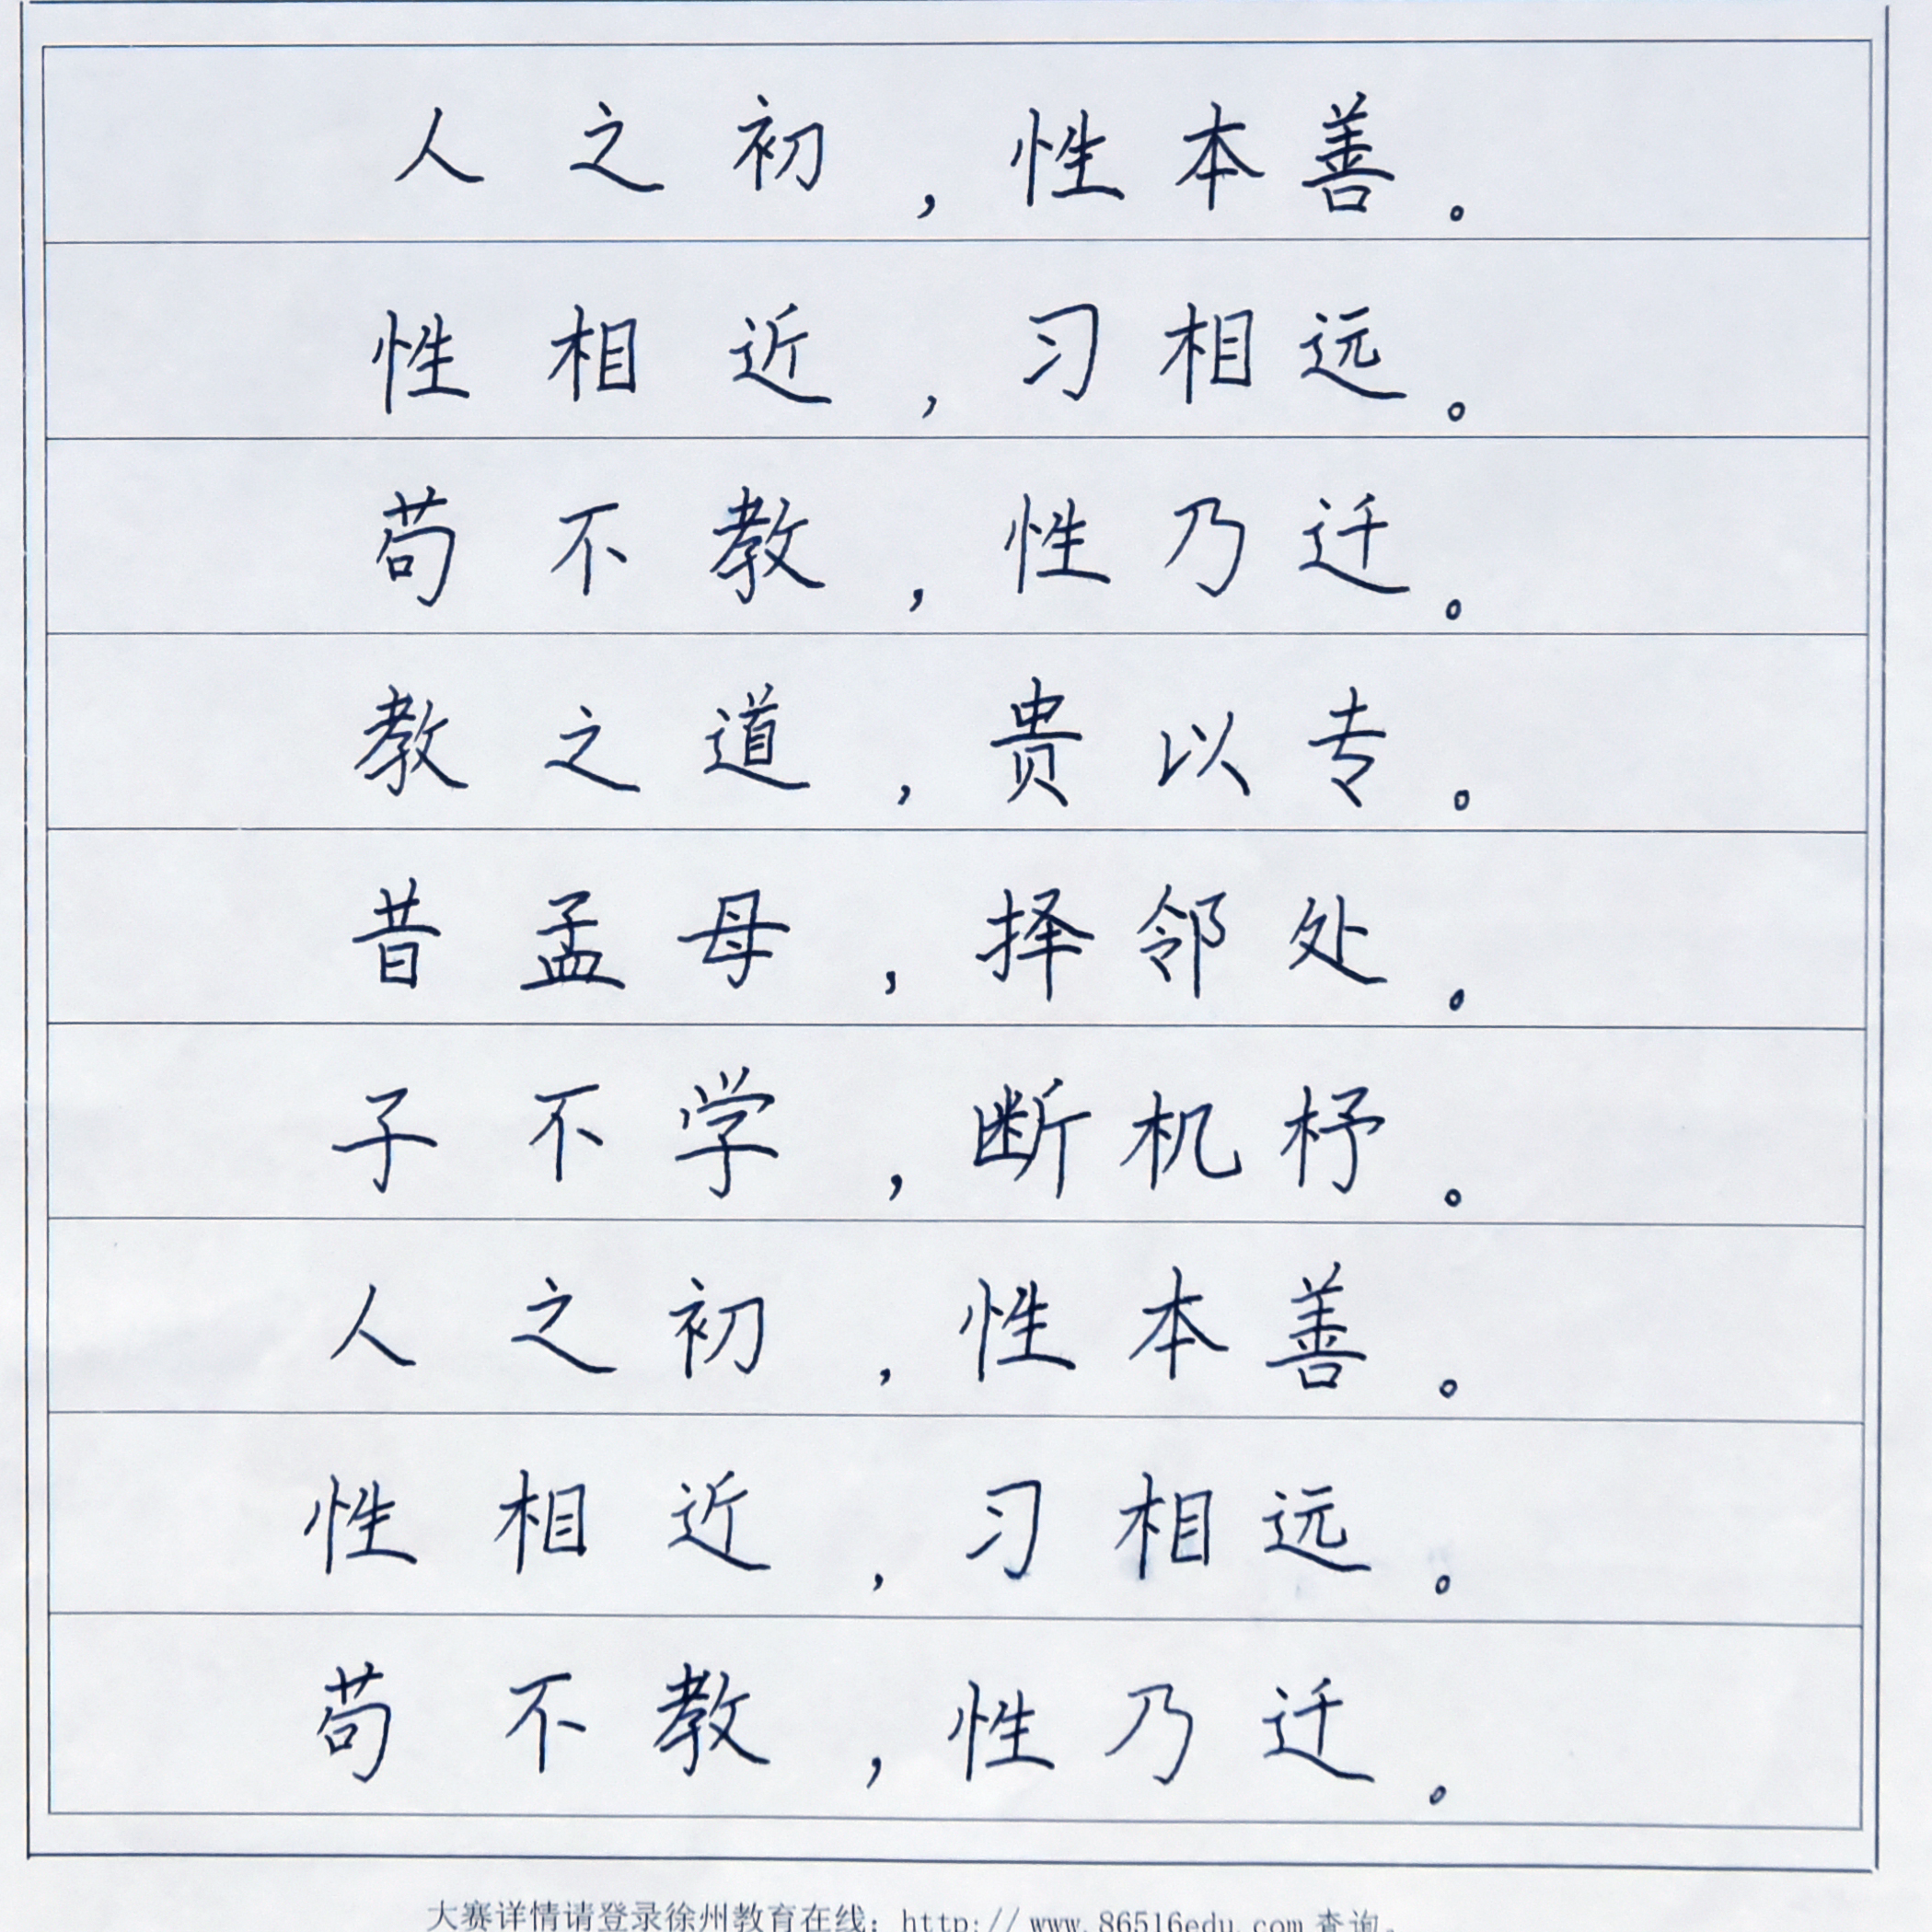 人之初，性本善。
性相近，习相远。
苟不教，性乃迁。
教之道，贵以专。
昔孟母，择邻处。
子不学，断机杼。
人之初，性本善。
性相近，习相远。
苟不教，性乃迁。
大赛详情请登录徐州教育在线：http://www.86516edu.com查询。